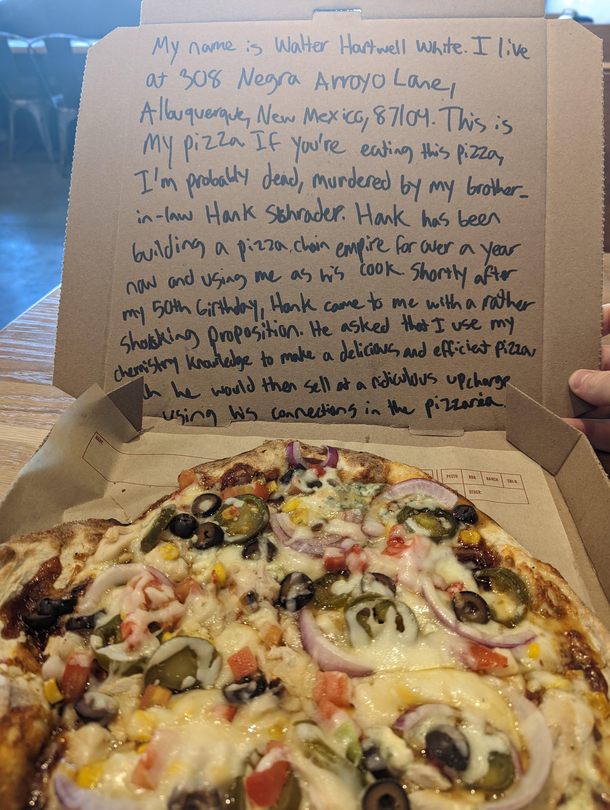 My name is Walter Hartwell White. I live
at 308 Negra Arroyo Lane,
Albuquerque, New Mexico, 87104. This is
My pizza If you're eating this pizza,
I'm probably dead, murdered by my brother-
in-law Hank Schrader. Hank has been
building a pizza chain empire for over a year
now and using me as his cook. Shortly after
my 50th birthday, Hank came to me with a rather
shocking proposition. He asked that I use my
chemistry knowledge to make a delicious and efficient pizza
he would then sell at a ridiculous upcharge
using his connections in the pizzaria.
PESTO BBQ RANCH
OTHER